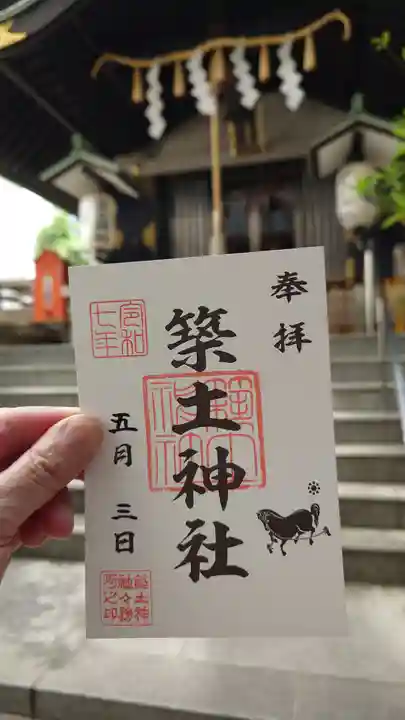 奉拝
築土神社
令和
七年
五月 三日